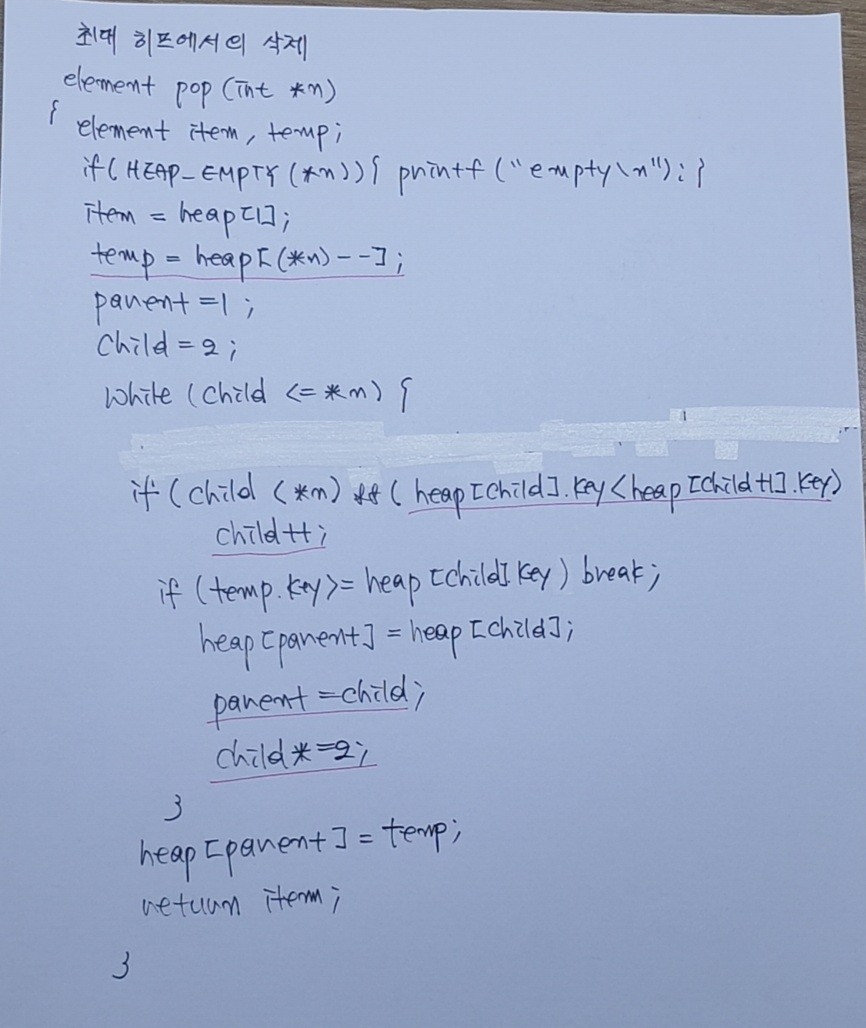 최대 히프에서의 삭제
element pop (int *n)
{
element item, temp;
if(HEAP_EMPTY(*n)){ printf("empty\n"); }
item = heap[1];
temp = heap[(*n)--];
parent =1;
Child = 2;
while (child <= *n) {
if (child < *n) && (heap[child].key<heap[child+1].key)
child++;
if (temp.key>= heap[child].key) break;
heap[parent] = heap[child];
parent =child;
child*=2;
}
heap[parent] = temp;
return item;
}